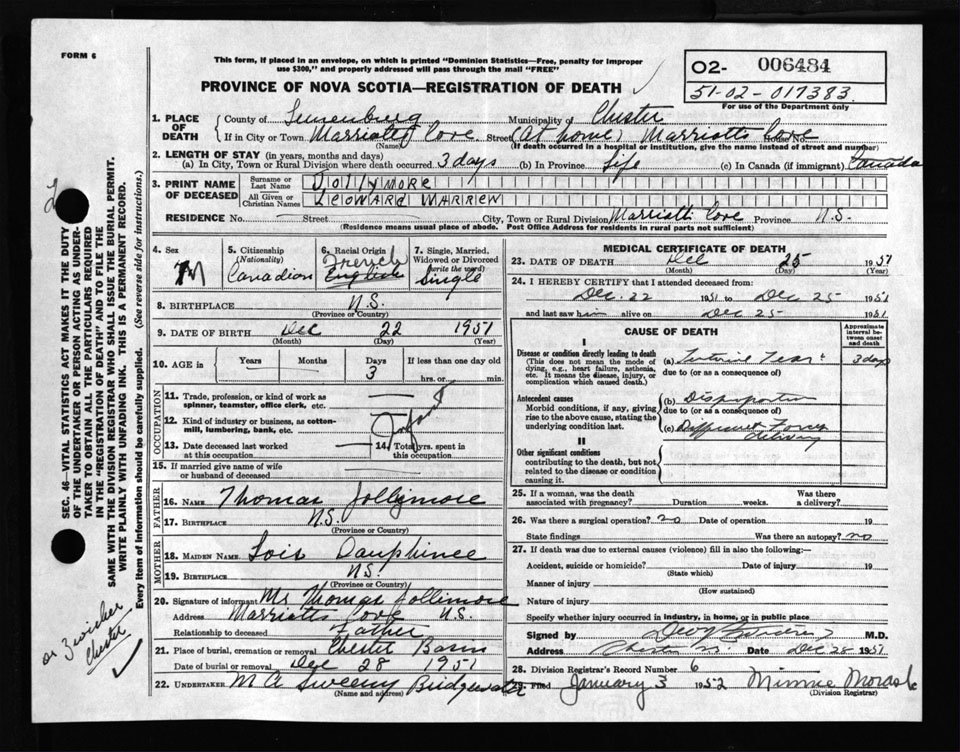 FORM 6
This form, if placed in an envelope, on which is printed "Dominion Statistics—Free, penalty for improper
use $300," and properly addressed will pass through the mail "FREE"
PROVINCE OF NOVA SCOTIA—REGISTRATION OF DEATH
O2- 006484
51-02-017383
For use of the Department only
1. PLACE OF DEATH
County of Lunenburg Municipality of Chester
If in City or Town Marriotts Cove Street (At home) Marriotts Cove House No.
(Name) (If death occurred in a hospital or institution, give the name instead of street and number)
2. LENGTH OF STAY (in years, months and days)
(a) In City, Town or Rural Division where death occurred 3 days (b) In Province life (c) In Canada (if immigrant) Canada
3. PRINT NAME OF DECEASED
Surname or Last Name Jollymore
All Given or Christian Names LEOWARD WARREN
RESIDENCE No. Street City, Town or Rural Division Marriotts Cove Province N.S.
(Residence means usual place of abode. Post Office Address for residents in rural parts not sufficient)
4. Sex M
5. Citizenship (Nationality) Canadian
6. Racial Origin French English
7. Single, Married, Widowed or Divorced (write the word) Single
8. BIRTHPLACE N.S.
(Province or Country)
9. DATE OF BIRTH Dec 22 1951
(Month) (Day) (Year)
10. AGE in Years Months Days 3 If less than one day old hrs. or min.
OCCUPATION
11. Trade, profession, or kind of work as spinner, teamster, office clerk, etc.
12. Kind of industry or business, as cotton-mill, lumbering, bank, etc. Infant
13. Date deceased last worked at this occupation
14. Total yrs. spent in this occupation
15. If married give name of wife or husband of deceased
FATHER
16. NAME Thomas Jollymore
17. BIRTHPLACE N.S.
(Province or Country)
MOTHER
18. MAIDEN NAME Lois Dauphinee
19. BIRTHPLACE N.S.
(Province or Country)
20. Signature of informant Mr Thomas Jollimore
Address Marriotts Cove N.S.
Relationship to deceased Father
21. Place of burial, cremation or removal Chester Basin
Date of burial or removal Dec 28 1951
22. UNDERTAKER M A Sweeny Bridgewater
(Name and address)
MEDICAL CERTIFICATE OF DEATH
23. DATE OF DEATH Dec 25 1951
(Month) (Day) (Year)
24. I HEREBY CERTIFY that I attended deceased from:
Dec. 22 1951 to Dec 25 1951
and last saw him alive on Dec 25 1951
CAUSE OF DEATH
Approximate interval between onset and death
I
Disease or condition directly leading to death
(This does not mean the mode of dying, e.g., heart failure, asthenia, etc. It means the disease, injury, or complication which caused death.)
(a) 3 days
due to (or as a consequence of)
Antecedent causes
Morbid conditions, if any, giving rise to the above cause, stating the underlying condition last.
(b)
due to (or as a consequence of)
(c) delivery
II
Other significant conditions
contributing to the death, but not related to the disease or condition causing it.
25. If a woman, was the death associated with pregnancy? Duration weeks. Was there a delivery?
26. Was there a surgical operation? no Date of operation 19
State findings Was there an autopsy? no
27. If death was due to external causes (violence) fill in also the following:—
Accident, suicide or homicide? Date of injury 19
(State which)
Manner of injury
(How sustained)
Nature of injury
Specify whether injury occurred in industry, in home, or in public place
Signed by M.D.
Address Chester Date Dec 28 1951
28. Division Registrar's Record Number 6
29. Filed January 3 1952 Minnie Morash
(Division Registrar)
SEC. 46—VITAL STATISTICS ACT MAKES IT THE DUTY
OF THE UNDERTAKER OR PERSON ACTING AS UNDER-
TAKER TO OBTAIN ALL THE PARTICULARS REQUIRED
IN THE "REGISTRATION OF DEATH" AND TO FILE THE
SAME WITH THE DIVISION REGISTRAR WHO SHALL ISSUE THE BURIAL PERMIT.
WRITE PLAINLY WITH UNFADING INK. THIS IS A PERMANENT RECORD.
Every item of information should be carefully supplied. (See reverse side for instructions.)
or Zwicker
Chester